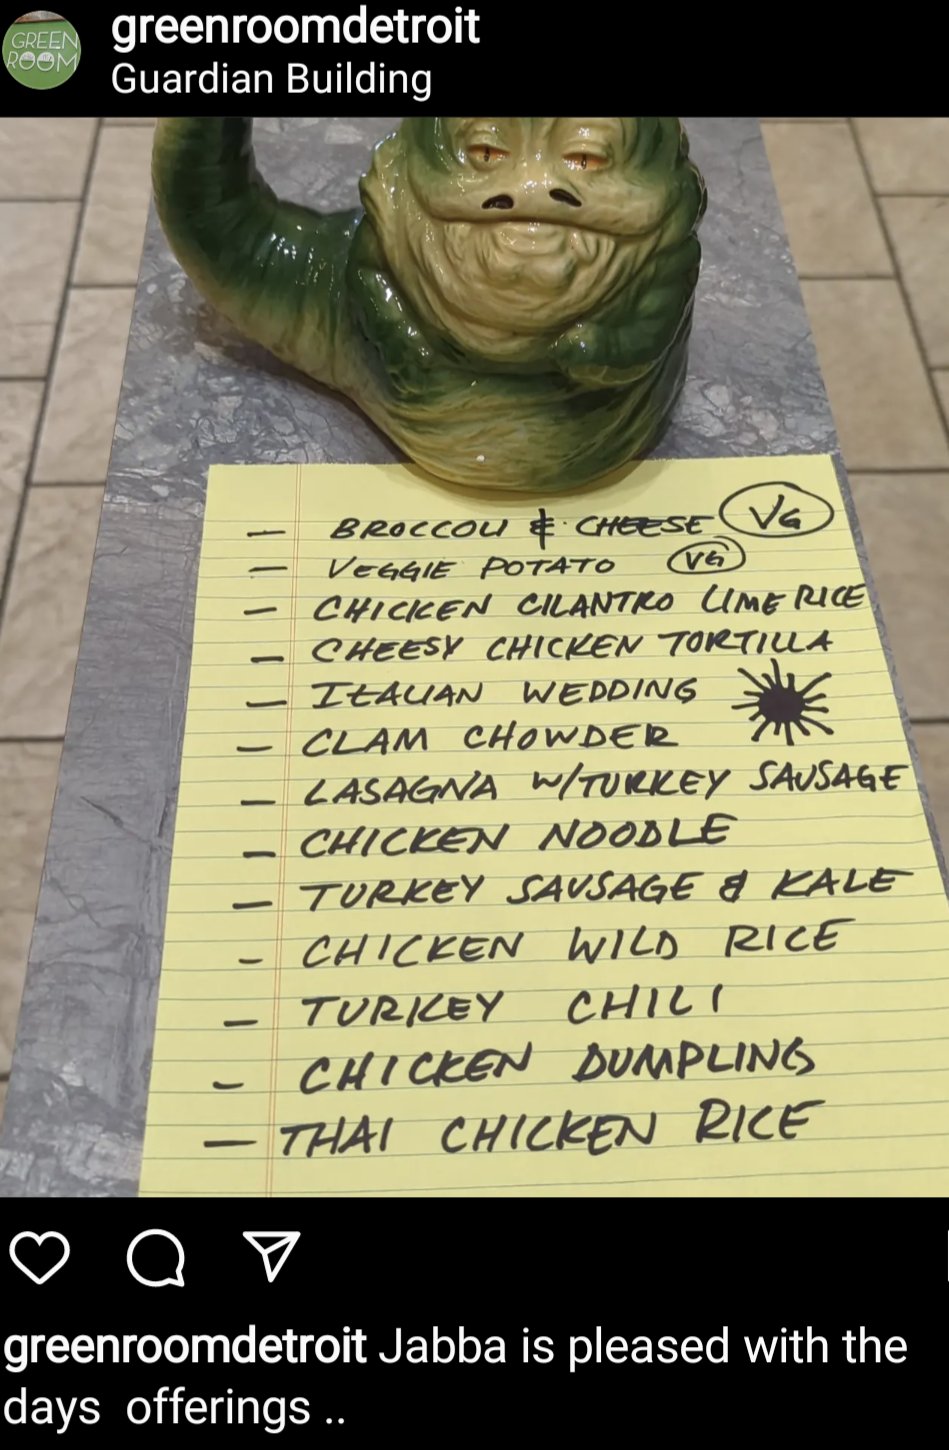 GREEN
ROOM
greenroomdetroit
Guardian Building
— BROCCOLI & CHEESE VG
— VEGGIE POTATO VG
— CHICKEN CILANTRO LIME RICE
— CHEESY CHICKEN TORTILLA
— ITALIAN WEDDING
— CLAM CHOWDER
— LASAGNA W/TURKEY SAUSAGE
— CHICKEN NOODLE
— TURKEY SAUSAGE & KALE
— CHICKEN WILD RICE
— TURKEY CHILI
— CHICKEN DUMPLING
— THAI CHICKEN RICE
greenroomdetroit Jabba is pleased with the
days offerings ..